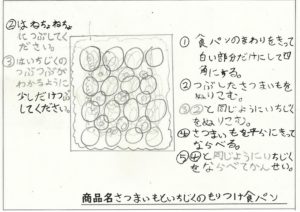 ②はねちょねちょ
に つぶしてく
ださい。
③はいちじくの
つぶつぶが
わかるように
少しだけつぶ
してください。
① 食パンのまわりをきって
白い部分だけにして四
角にする。
② つぶしたさつまいもを
ぬりこむ。
③ ②と同じようにいちじく
をぬりこむ。
④ さつまいもを平かにきって
ならべる。
⑤ ④と同じようにいちじく
をならべてかんせい。
商品名さつまいもといちじくのもりつけ食パン